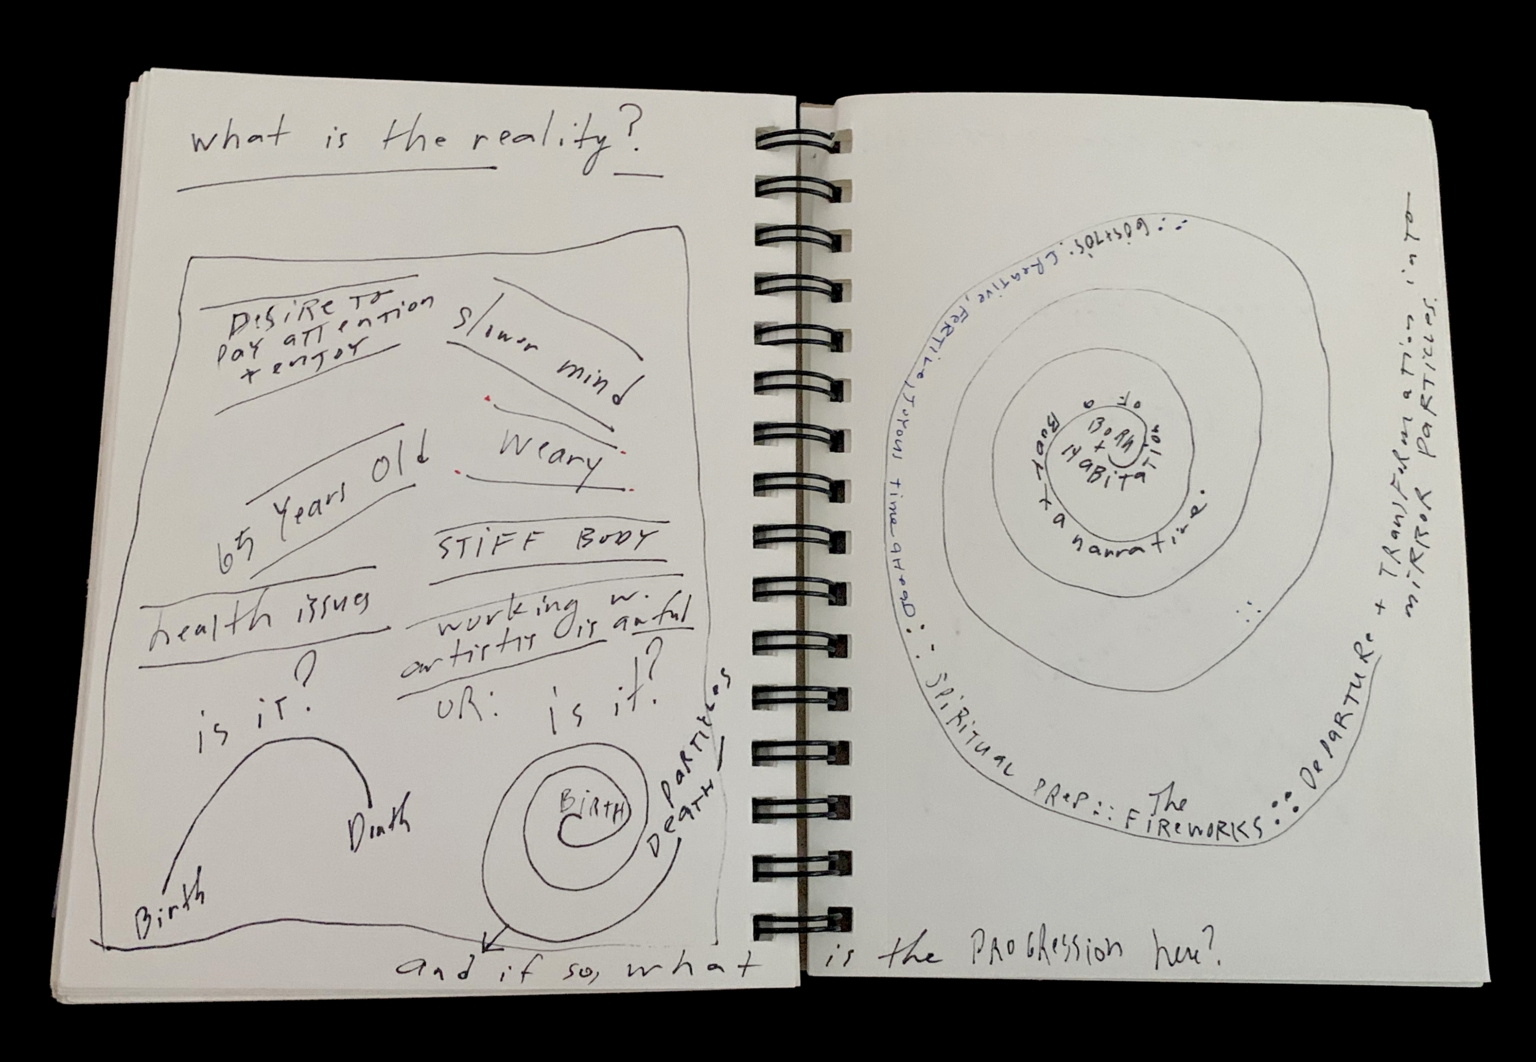 what is the reality?
DESIRE TO
PAY ATTENTION
+ ENJOY
slower mind
weary
65 years old
STIFF BODY
health issues
working w.
artists is awful
is it?
OR: is it?
Birth
Death
BIRTH
PARTICLES
DEATH
and if so, what is the PROGRESSION here?
BORN
+
HABITATION OF a BODY + a narrative.
60s+70s: CREATIVE, FERTILE, JOYOUS time ahead
SPIRITUAL PREP::
The
FIREWORKS
DEPARTURE + TRANSFORMATION into
MIRROR PARTICLES.